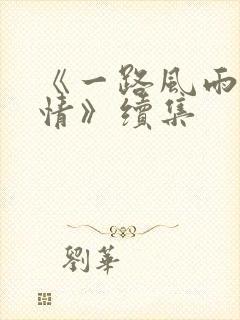 《一路風雨
情》續集
劉華